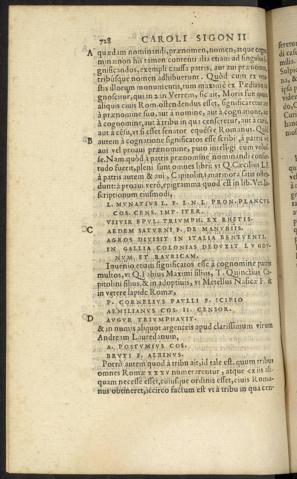 728 CAROLI SIGONII
A quædam nominandi, prænomen, nomen, atque cogno
minæ non his tamen contenti alia etiam ad singulos si-
gnificandos, exempli caussa patris, aut aui prænomen,
tribusque nomen adhibuerunt. Quòd cum ex ve
illorum monumentis, tum maximè ex Pædiano co
gnoscitur, qui in 2. in Verrem, sic ait, Moris fuit
aliquis ciuis Rom. ostendendus esset, significaretur aut
à prænomine suo, aut à nomine, aut à cognatione, aut
à cognomine, aut à tribu in qua censeretur, aut à curia,
aut à cẽsu, vt si esset senator eques Romanus. Quòd
B autem à cognatione significatos esse scribit, à patris et
aui vel proaui prænomine, puto intelligi eum volui
se. Nam quòd à patris prænomine nominandi consue
tudo fuerit, pleni sunt omnes libri: vt Q. Cæcilius L. F.
à patris autem & aui, Capitolini marmora satis osten
dunt: à proaui verò, epigramma quod est in lib. Vet. In
scriptionum eiusmodi,
L. MVNATIVS L. F. L. N. L. PRON. PLANCVS
COS. CENS. IMP. ITER.
VIIVIR EPVL. TRIVMPH. EX RHETIS
C AEDEM SATVRNI F. DE MANVBIIS.
AGROS DIVISIT IN ITALIA BENEVENTI,
IN GALLIA COLONIAS DEDVXIT LVGDV
NVM ET RAVRICAM.
Inuenio etiam significatos esse à cognomine patris
multos, vt Q. Fabius Maximi filius, T. Quinctius Ca
pitolini filius, & in adoptiuis, vt Metellus Nasicæ F. &
in vetere lapide Romæ,
P. CORNELIVS PAVLLI F. SCIPIO
AEMILIANVS COS. II. CENSOR.
D AVGVR TRIVMPHAVIT.
& in numis aliquot argenteis apud clarissimum virum
Andream Lauredanum,
A. POSTVMIVS COS.
BRVTI F. ALBINVS.
Porrò autem quòd à tribu ait, id tale est. quum tribus
omnes Romæ XXXV numerarentur, atque ex iis ali-
quam necesse esset, cuiusque ordinis esset, ciuis Roma-
nus obtineret, iccirco factum est vt à tribu in qua cen-